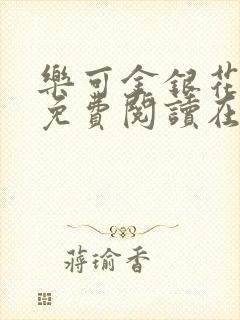 樂可金銀花
免費閱讀在
蔣瑜香